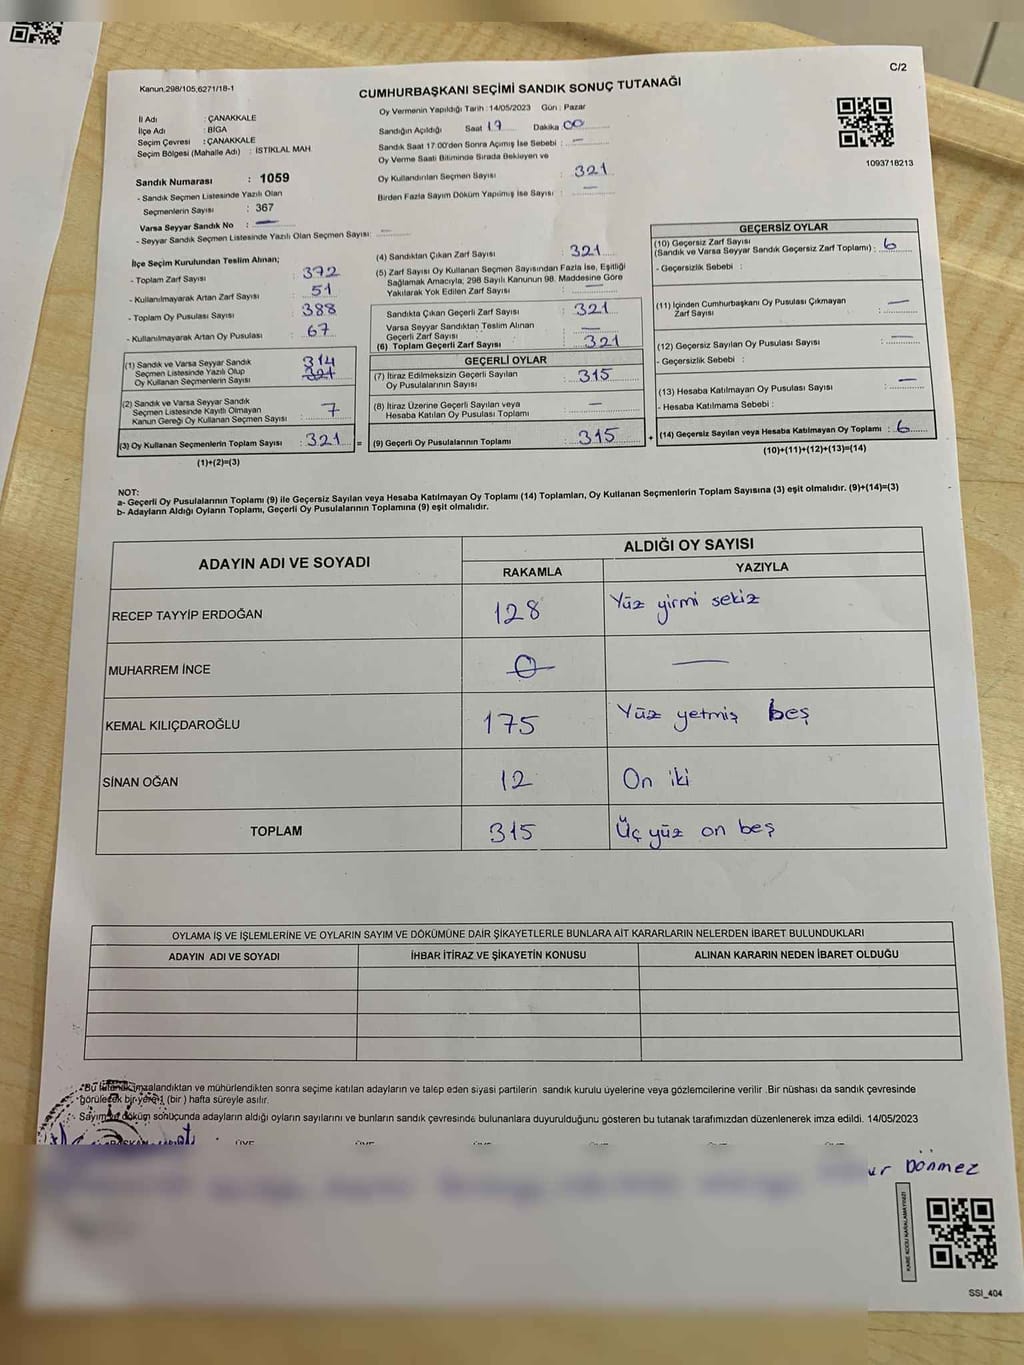 C/2
Kanun.298/105,6271/18-1
CUMHURBAŞKANI SEÇİMİ SANDIK SONUÇ TUTANAĞI
Oy Vermenin Yapıldığı Tarih :14/05/2023 Gün : Pazar
İl Adı : ÇANAKKALE
İlçe Adı : BİGA
Seçim Çevresi : ÇANAKKALE
Seçim Bölgesi (Mahalle Adı) : İSTİKLAL MAH.
Sandığın Açıldığı Saat 17 Dakika 00
Sandık Saat 17.00'den Sonra Açımış İse Sebebi : —
Oy Verme Saati Bitiminde Sırada Bekleyen ve
Oy Kullandırılan Seçmen Sayısı : 321
Birden Fazla Sayım Döküm Yapılmış İse Sayısı : —
1093718213
Sandık Numarası : 1059
- Sandık Seçmen Listesinde Yazılı Olan
Seçmenlerin Sayısı : 367
Varsa Seyyar Sandık No : —
- Seyyar Sandık Seçmen Listesinde Yazılı Olan Seçmen Sayısı: —
İlçe Seçim Kurulundan Teslim Alınan;
- Toplam Zarf Sayısı : 372
- Kullanılmayarak Artan Zarf Sayısı : 51
- Toplam Oy Pusulası Sayısı : 388
- Kullanılmayarak Artan Oy Pusulası : 67
(1) Sandık ve Varsa Seyyar Sandık
Seçmen Listesinde Yazılı Olup
Oy Kullanan Seçmenlerin Sayısı : 314 321
(2) Sandık ve Varsa Seyyar Sandık
Seçmen Listesinde Kayıtlı Olmayan
Kanun Gereği Oy Kullanan Seçmen Sayısı : 7
(3) Oy Kullanan Seçmenlerin Toplam Sayısı : 321 =
(1)+(2)=(3)
(4) Sandıktan Çıkan Zarf Sayısı : 321
(5) Zarf Sayısı Oy Kullanan Seçmen Sayısından Fazla İse, Eşitliği
Sağlamak Amacıyla; 298 Sayılı Kanunun 98. Maddesine Göre
Yakılarak Yok Edilen Zarf Sayısı : —
Sandıkta Çıkan Geçerli Zarf Sayısı : 321
Varsa Seyyar Sandıktan Teslim Alınan
Geçerli Zarf Sayısı : —
(6) Toplam Geçerli Zarf Sayısı : 321
GEÇERLİ OYLAR
(7) İtiraz Edilmeksizin Geçerli Sayılan
Oy Pusulalarının Sayısı : 315
(8) İtiraz Üzerine Geçerli Sayılan veya
Hesaba Katılan Oy Pusulası Toplamı : —
(9) Geçerli Oy Pusulalarının Toplamı : 315 +
GEÇERSİZ OYLAR
(10) Geçersiz Zarf Sayısı
(Sandık ve Varsa Seyyar Sandık Geçersiz Zarf Toplamı) : 6
- Geçersizlik Sebebi :
(11) İçinden Cumhurbaşkanı Oy Pusulası Çıkmayan
Zarf Sayısı : —
(12) Geçersiz Sayılan Oy Pusulası Sayısı : —
- Geçersizlik Sebebi :
(13) Hesaba Katılmayan Oy Pusulası Sayısı : —
- Hesaba Katılmama Sebebi :
(14) Geçersiz Sayılan veya Hesaba Katılmayan Oy Toplamı : 6
(10)+(11)+(12)+(13)=(14)
NOT:
a- Geçerli Oy Pusulalarının Toplamı (9) ile Geçersiz Sayılan veya Hesaba Katılmayan Oy Toplamı (14) Toplamları, Oy Kullanan Seçmenlerin Toplam Sayısına (3) eşit olmalıdır. (9)+(14)=(3)
b- Adayların Aldığı Oyların Toplamı, Geçerli Oy Pusulalarının Toplamına (9) eşit olmalıdır.
ADAYIN ADI VE SOYADI ALDIĞI OY SAYISI
RAKAMLA YAZIYLA
RECEP TAYYİP ERDOĞAN 128 Yüz yirmi sekiz
MUHARREM İNCE 0 —
KEMAL KILIÇDAROĞLU 175 Yüz yetmiş beş
SİNAN OĞAN 12 On iki
TOPLAM 315 Üç yüz on beş
OYLAMA İŞ VE İŞLEMLERİNE VE OYLARIN SAYIM VE DÖKÜMÜNE DAİR ŞİKAYETLERLE BUNLARA AİT KARARLARIN NELERDEN İBARET BULUNDUKLARI
ADAYIN ADI VE SOYADI İHBAR İTİRAZ VE ŞİKAYETİN KONUSU ALINAN KARARIN NEDEN İBARET OLDUĞU
Bu tutanak imzalandıktan ve mühürlendikten sonra seçime katılan adayların ve talep eden siyasi partilerin sandık kurulu üyelerine veya gözlemcilerine verilir. Bir nüshası da sandık çevresinde
görülecek bir yere 1 (bir ) hafta süreyle asılır.
Sayım ve döküm sonuçunda adayların aldığı oyların sayılarını ve bunların sandık çevresinde bulunanlara duyurulduğunu gösteren bu tutanak tarafımızdan düzenlenerek imza edildi. 14/05/2023
BAŞKAN
Dönmez
KARE KODU KARALAMAYINIZ!
SSİ_404